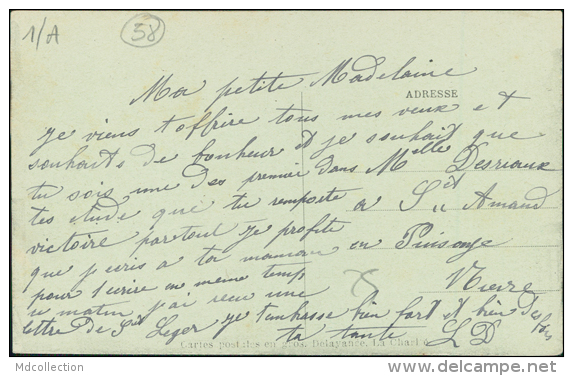 1/A
58
Ma petite Madelaine
ADRESSE
je viens t'offrire tous mes veux et
souhaits de bonheur et je souhait que
tu sois une des premier dans
Melle Desriaux
tes etude que tu remporte
a St Amand
victoire partout je profite
que j'ecris a ta maman
en Puisaye
pour t'ecrire en meme temp
ce matin j'ai recu une
lettre de St Leger je t'embrasse bien fort et bien des fois
ta tante L D
Cartes postales en gros, Delayance, La Charité
Mdcollection
www.delcampe.net